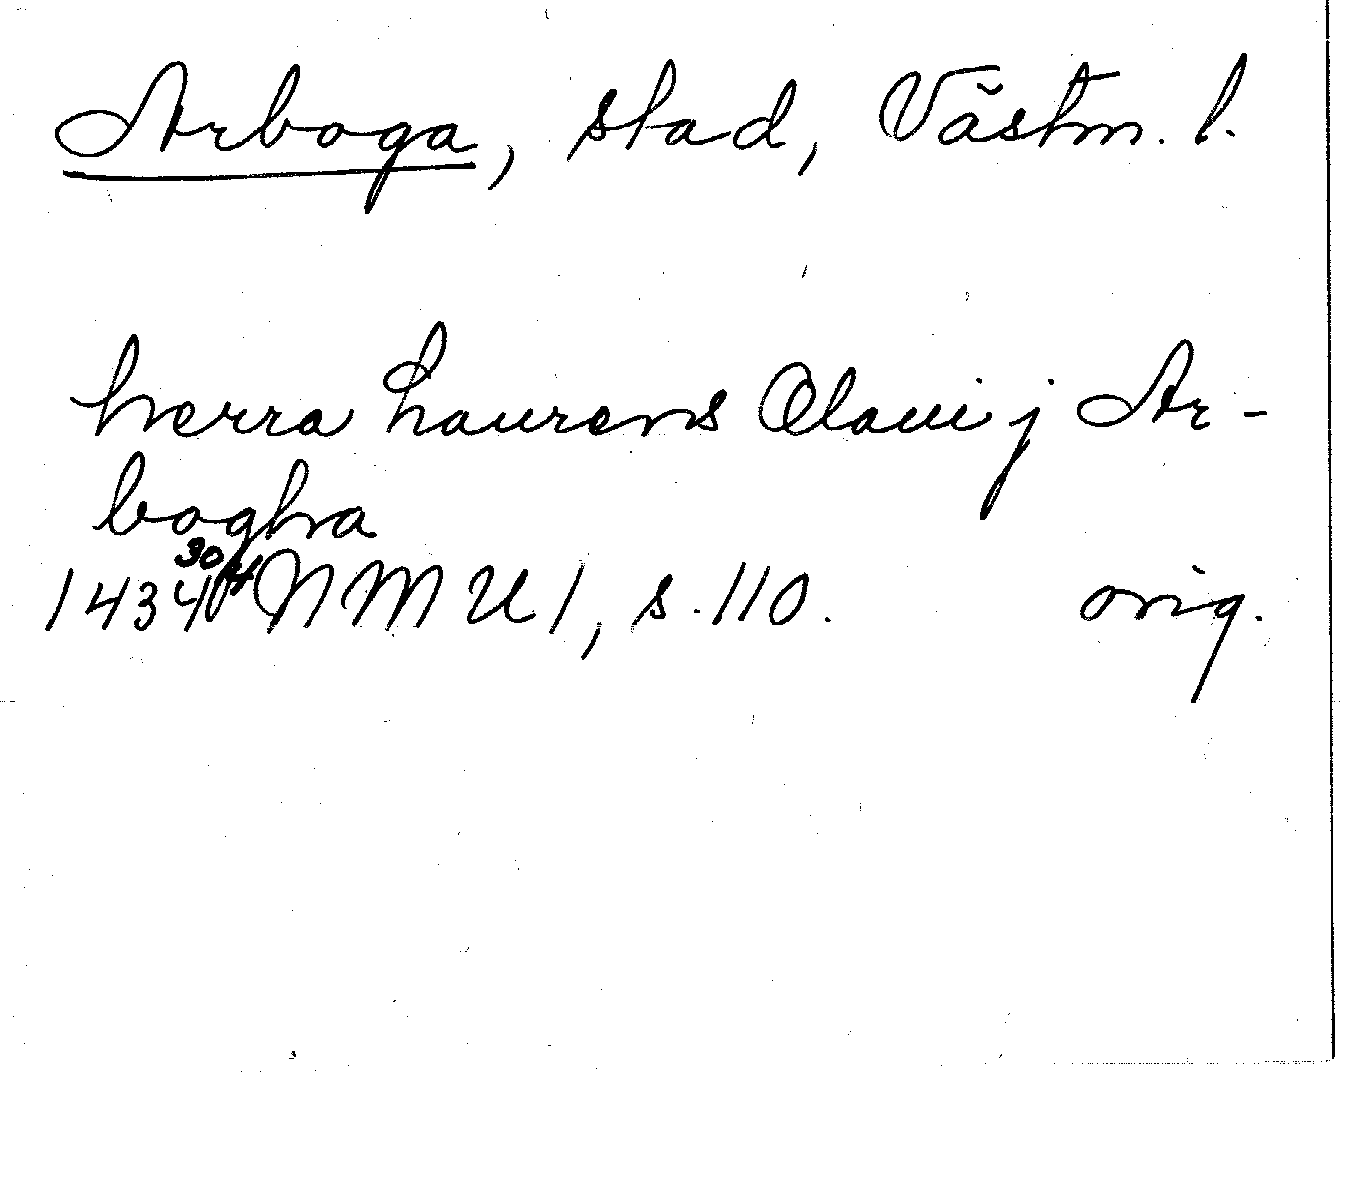 Arboga, stad, Västm. l.
herra Laurens Olaui j Ar-
bogha
1434 30/4 NMU 1, s. 110. orig.